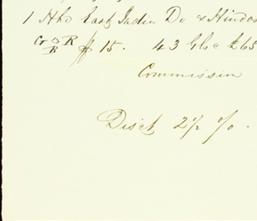 1 Hhd East India Do & Hindos
No 15. 43 Gls £65
Commission
Disct 2½ %.